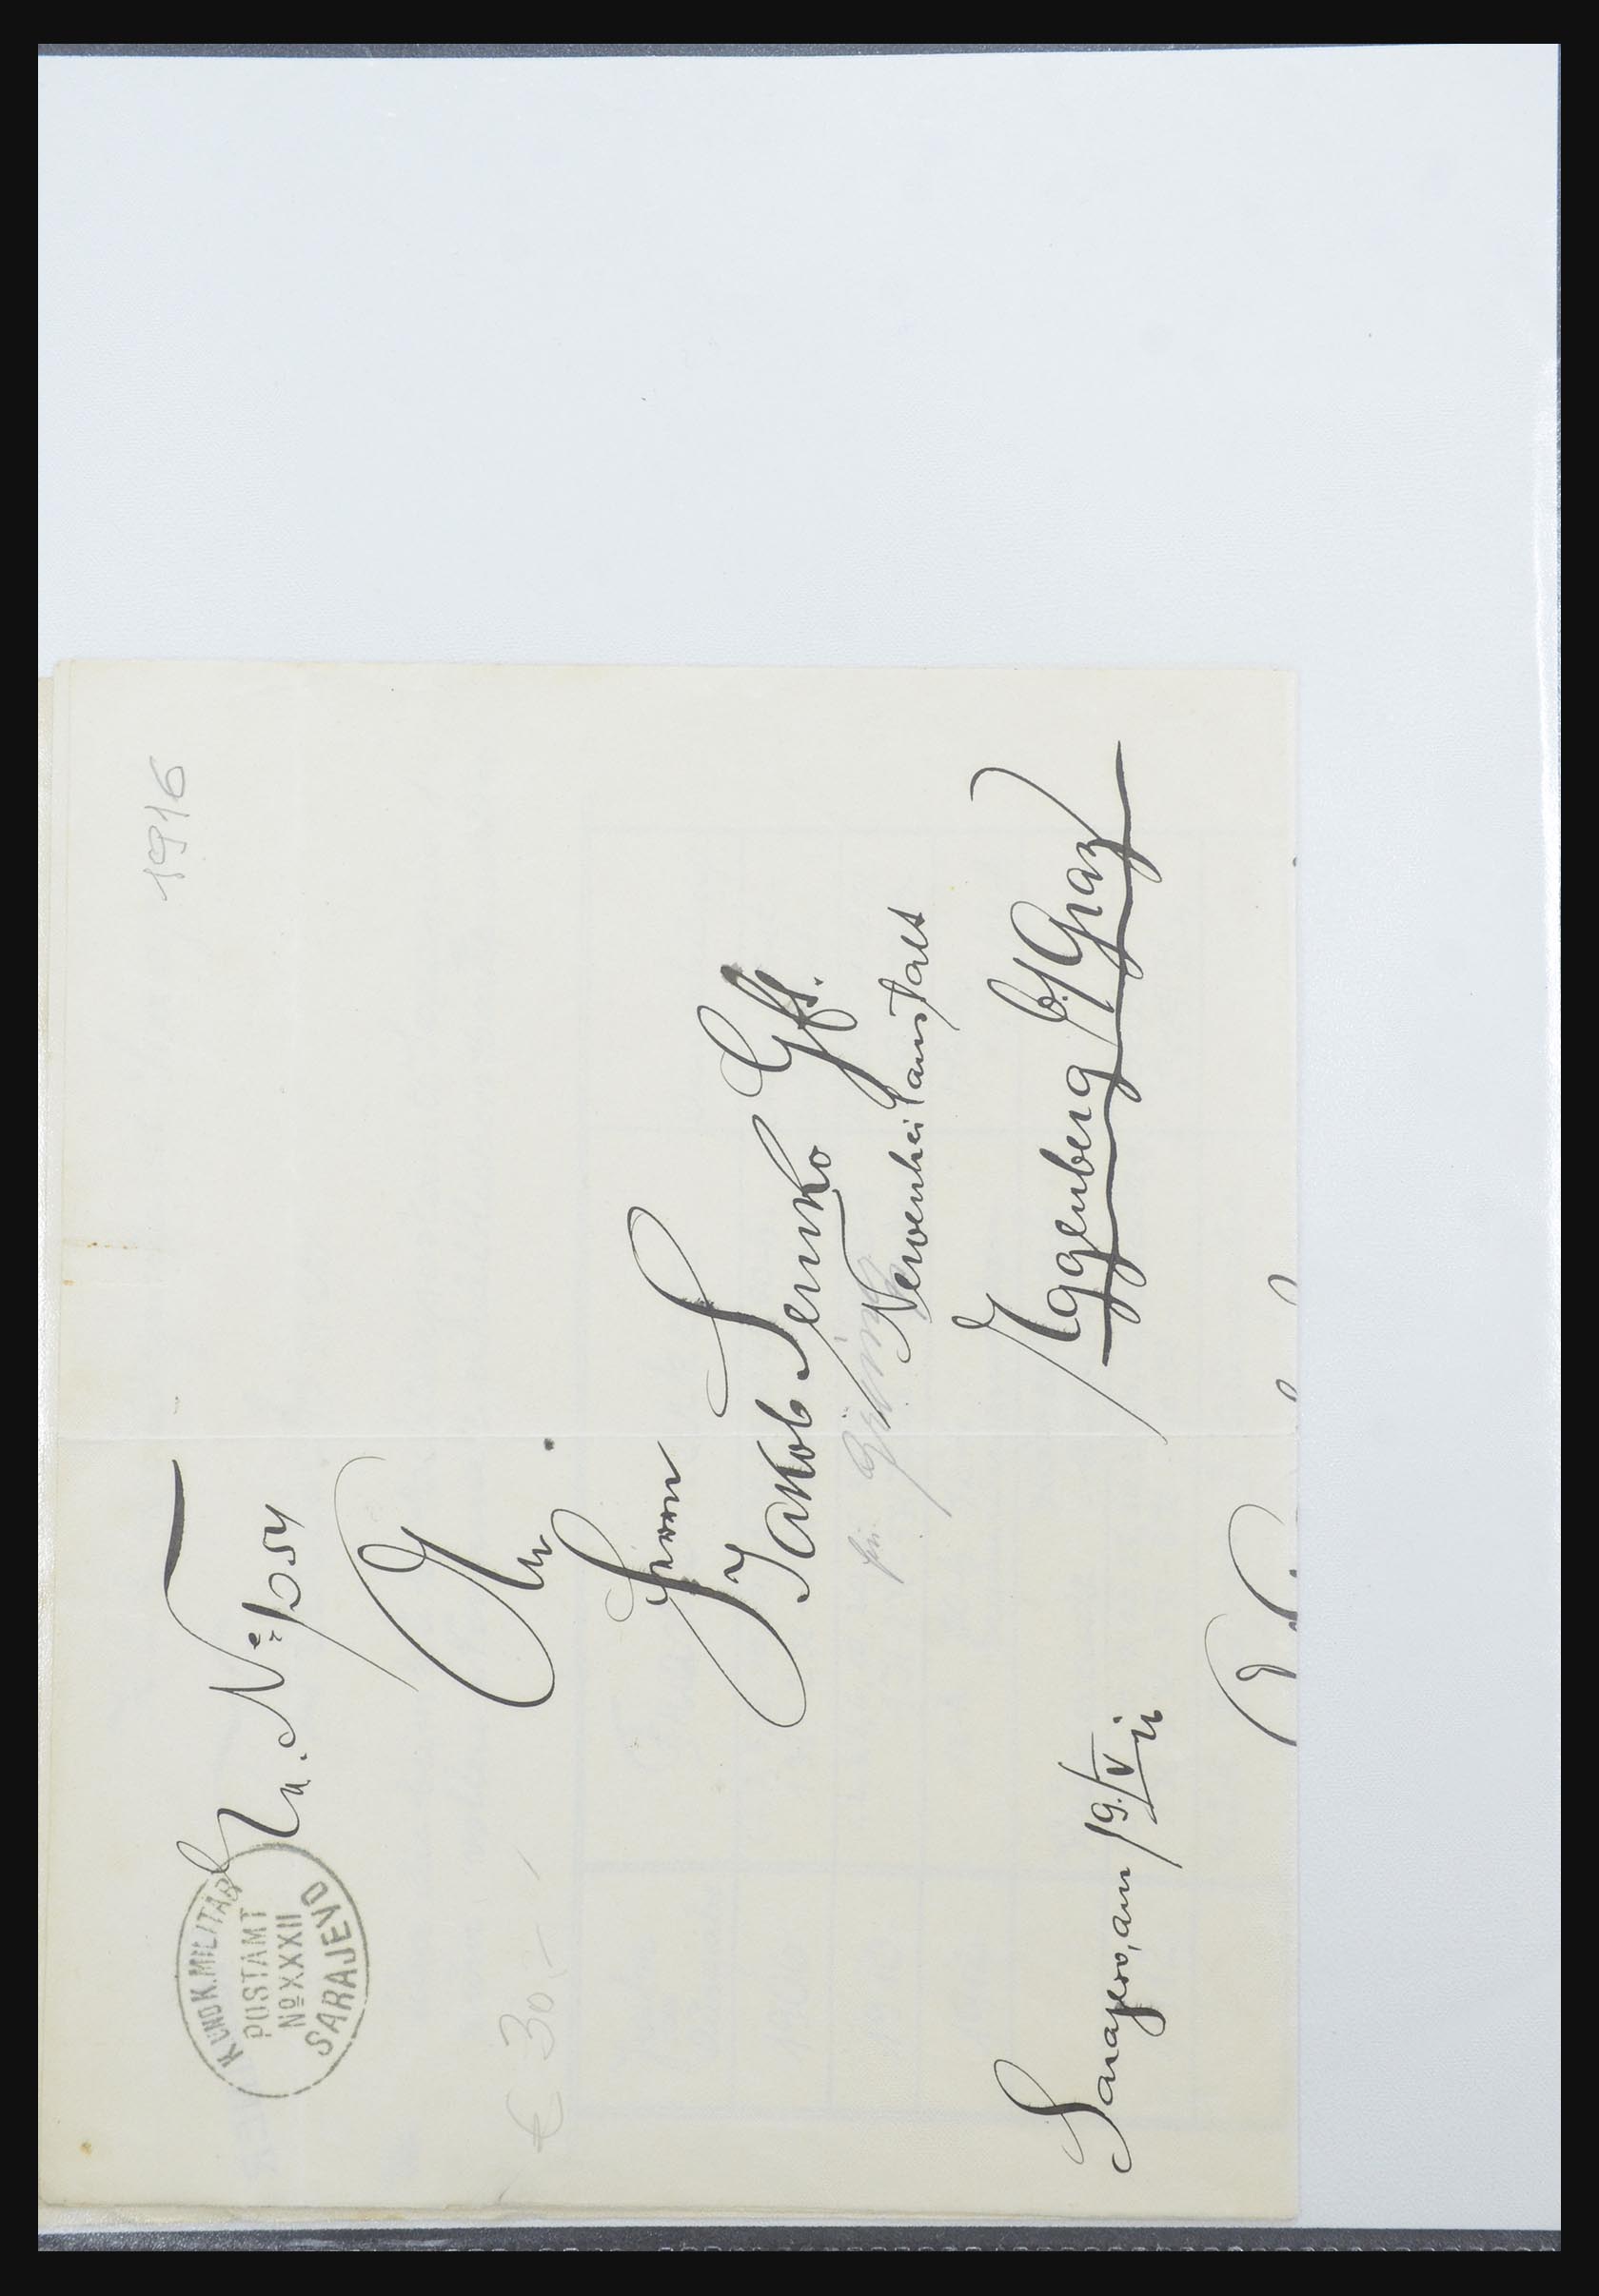 1916
K. UND K. MILITÄR
POSTAMT
No XXXII
SARAJEVO
An
Herrn
Jakob Sernko Gfr.
für
Nervenheilanstalt
Eggenberg b./Graz
Sarajevo, am 19./V
€ 30,-